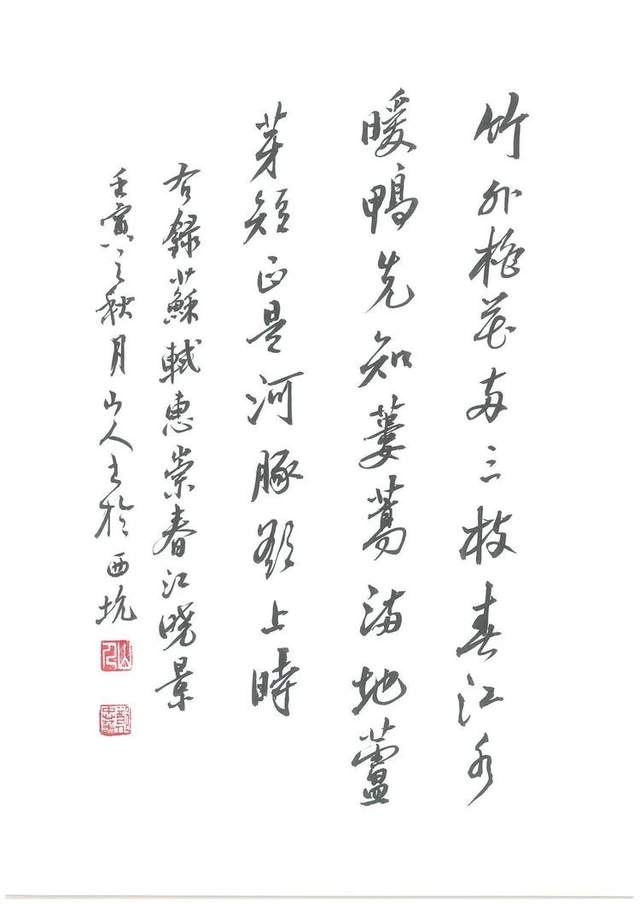 竹外桃花兩三枝春江水
暖鴨先知蔞蒿滿地蘆
芽短正是河豚欲上時
右錄蘇軾惠崇春江晓景
壬寅之秋月山人書於西坑
山人